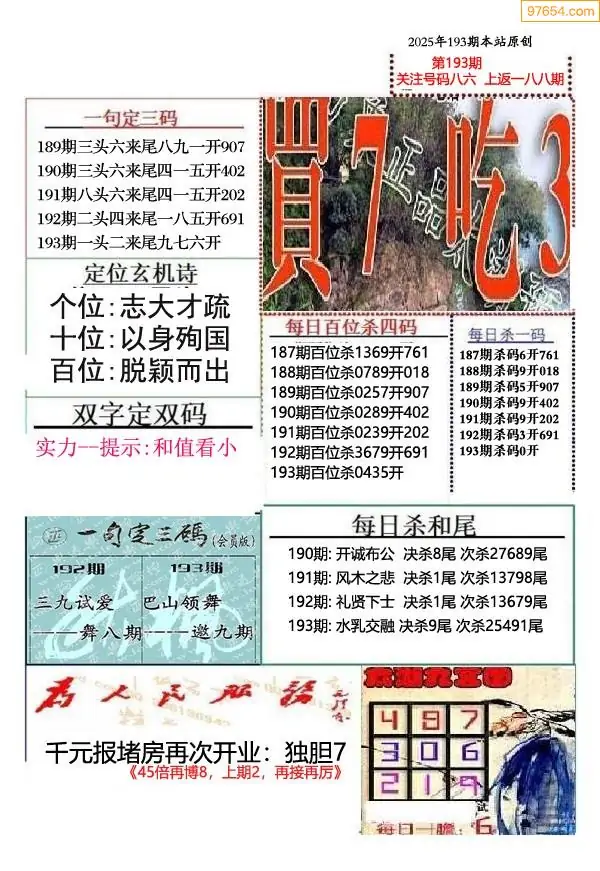 97654.com
2025年193期本站原创
第193期
关注号码八六 上返一八八期
一句定三码
189期三头六来尾八九一开907
190期三头六来尾四一五开402
191期八头六来尾四一五开202
192期二头四来尾一八五开691
193期一头二来尾九七六开
買7吃3
正品
定位玄机诗
个位:志大才疏
十位:以身殉国
百位:脱颖而出
双字定双码
实力--提示:和值看小
每日百位杀四码
187期百位杀1369开761
188期百位杀0789开018
189期百位杀0257开907
190期百位杀0289开402
191期百位杀0239开202
192期百位杀3679开691
193期百位杀0435开
每日杀一码
187期杀码6开761
188期杀码9开018
189期杀码5开907
190期杀码9开402
191期杀码9开202
192期杀码3开691
193期杀码0开
正 一句定三碼(会员版)
192期 193期
三九试爱 巴山领舞
----舞八期----邀九期
每日杀和尾
190期: 开诚布公 决杀8尾 次杀27689尾
191期: 风木之悲 决杀1尾 次杀13798尾
192期: 礼贤下士 决杀1尾 次杀13679尾
193期: 水乳交融 决杀9尾 次杀25491尾
为人民服务
千元报堵房再次开业：独胆7
《45倍再博8，上期2，再接再厉》
4 9 7
3 0 6
2 1 9
试
每日一胆: 6